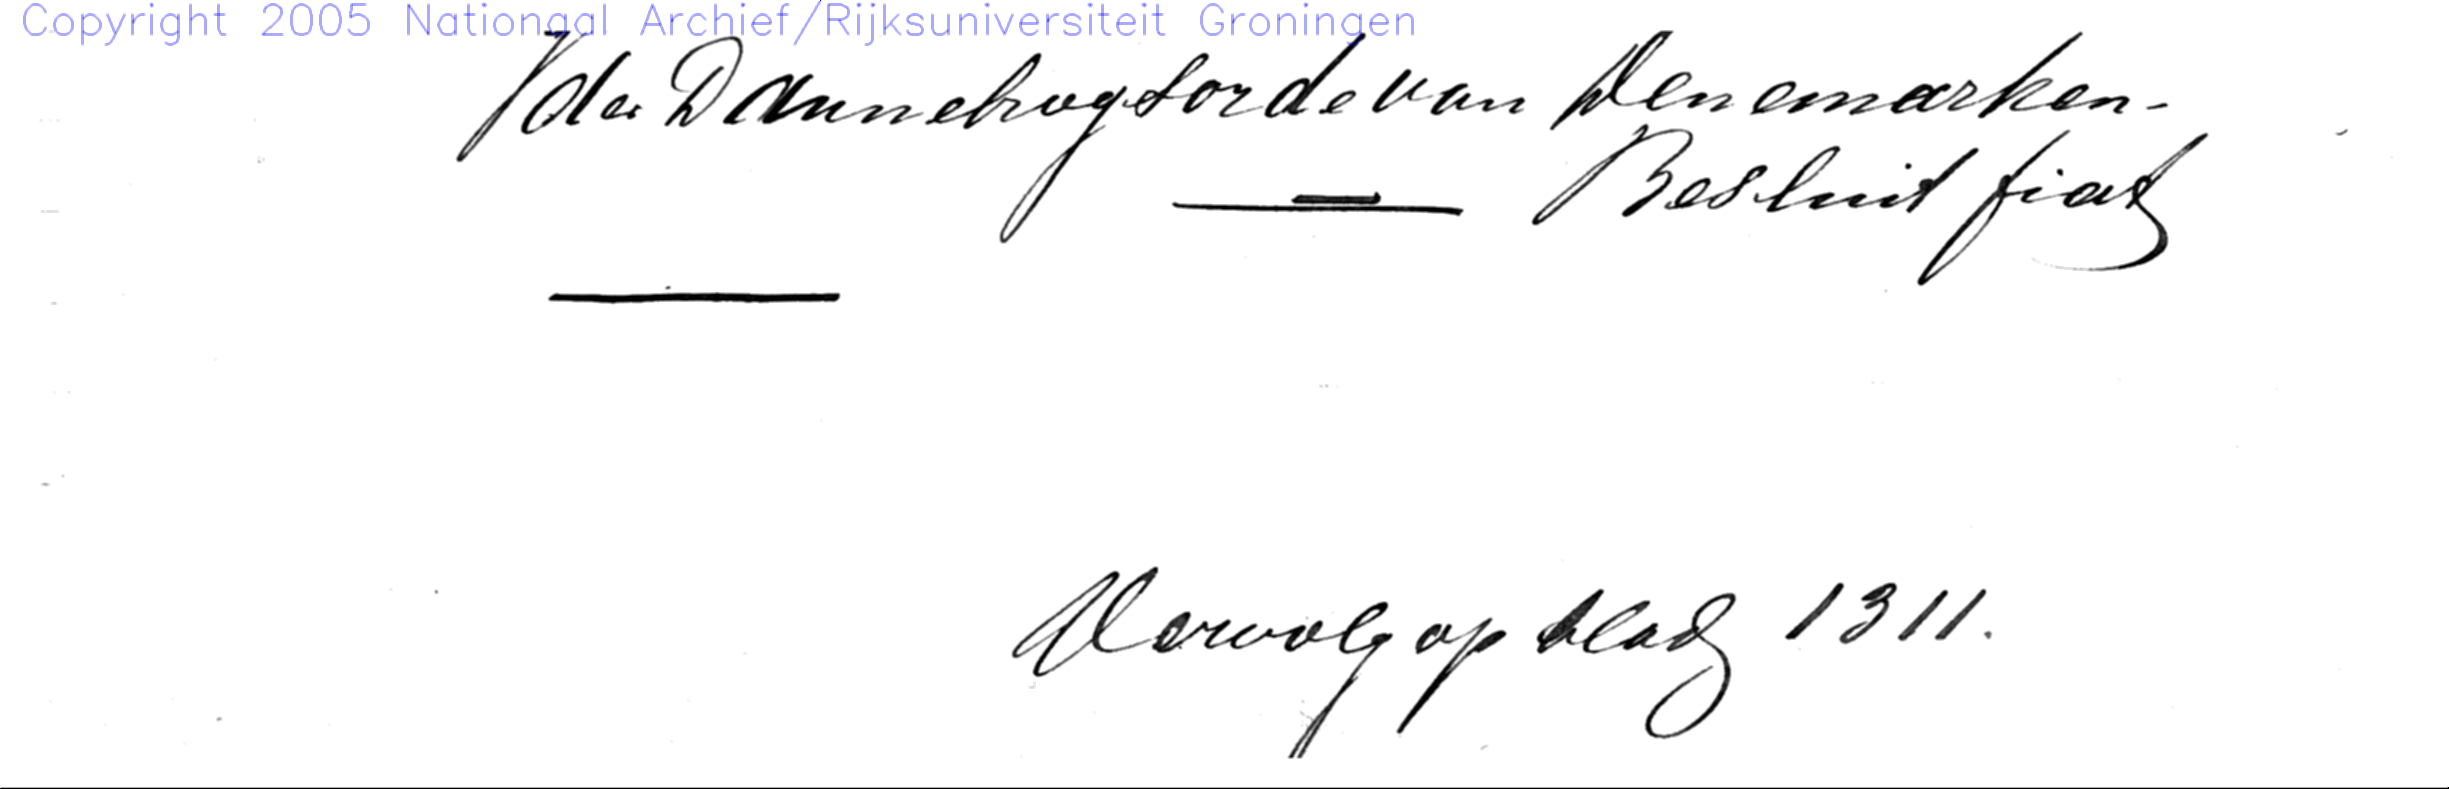 Copyright 2005 Nationaal Archief/Rijksuniversiteit Groningen
der Dannebrogsorde van Denemarken-
Besluit fiat
Vervolg op blad 1311.